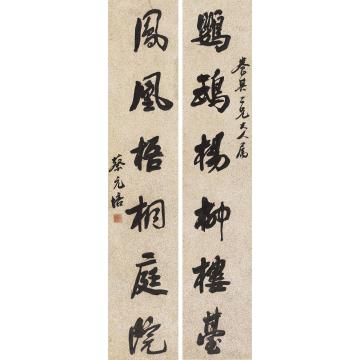 鸚鵡楊柳樓臺
養其二兄大人屬
鳳凰梧桐庭院
蔡元培